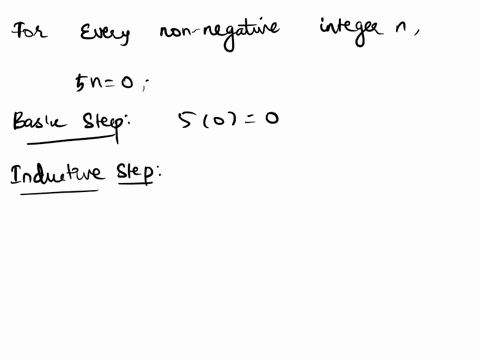 For Every non-negative integer n,
5n=0;
Basic Step: 5(0)=0
Inductive Step: